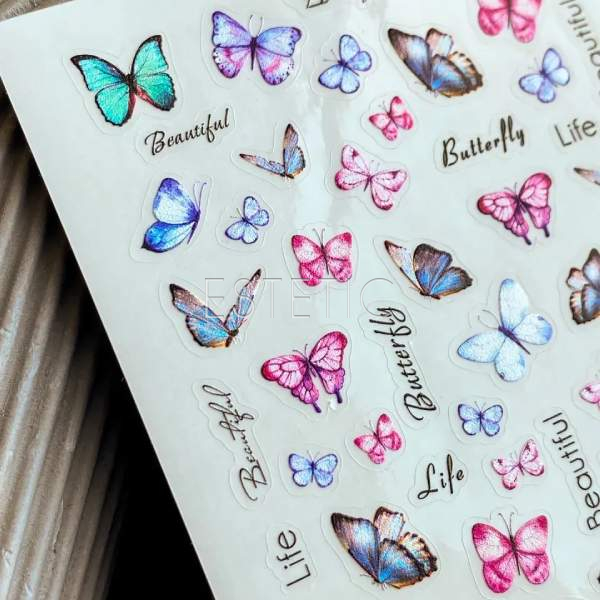 Beautiful
Butterfly
Beautiful
Life
ESTETIC
Butterfly
Beautiful
Life
Beautiful
Life